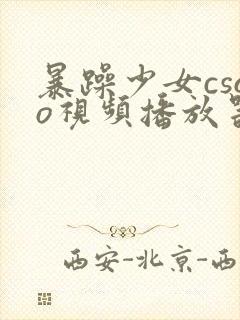 暴躁少女csg
o視頻播放器
西安-北京-西